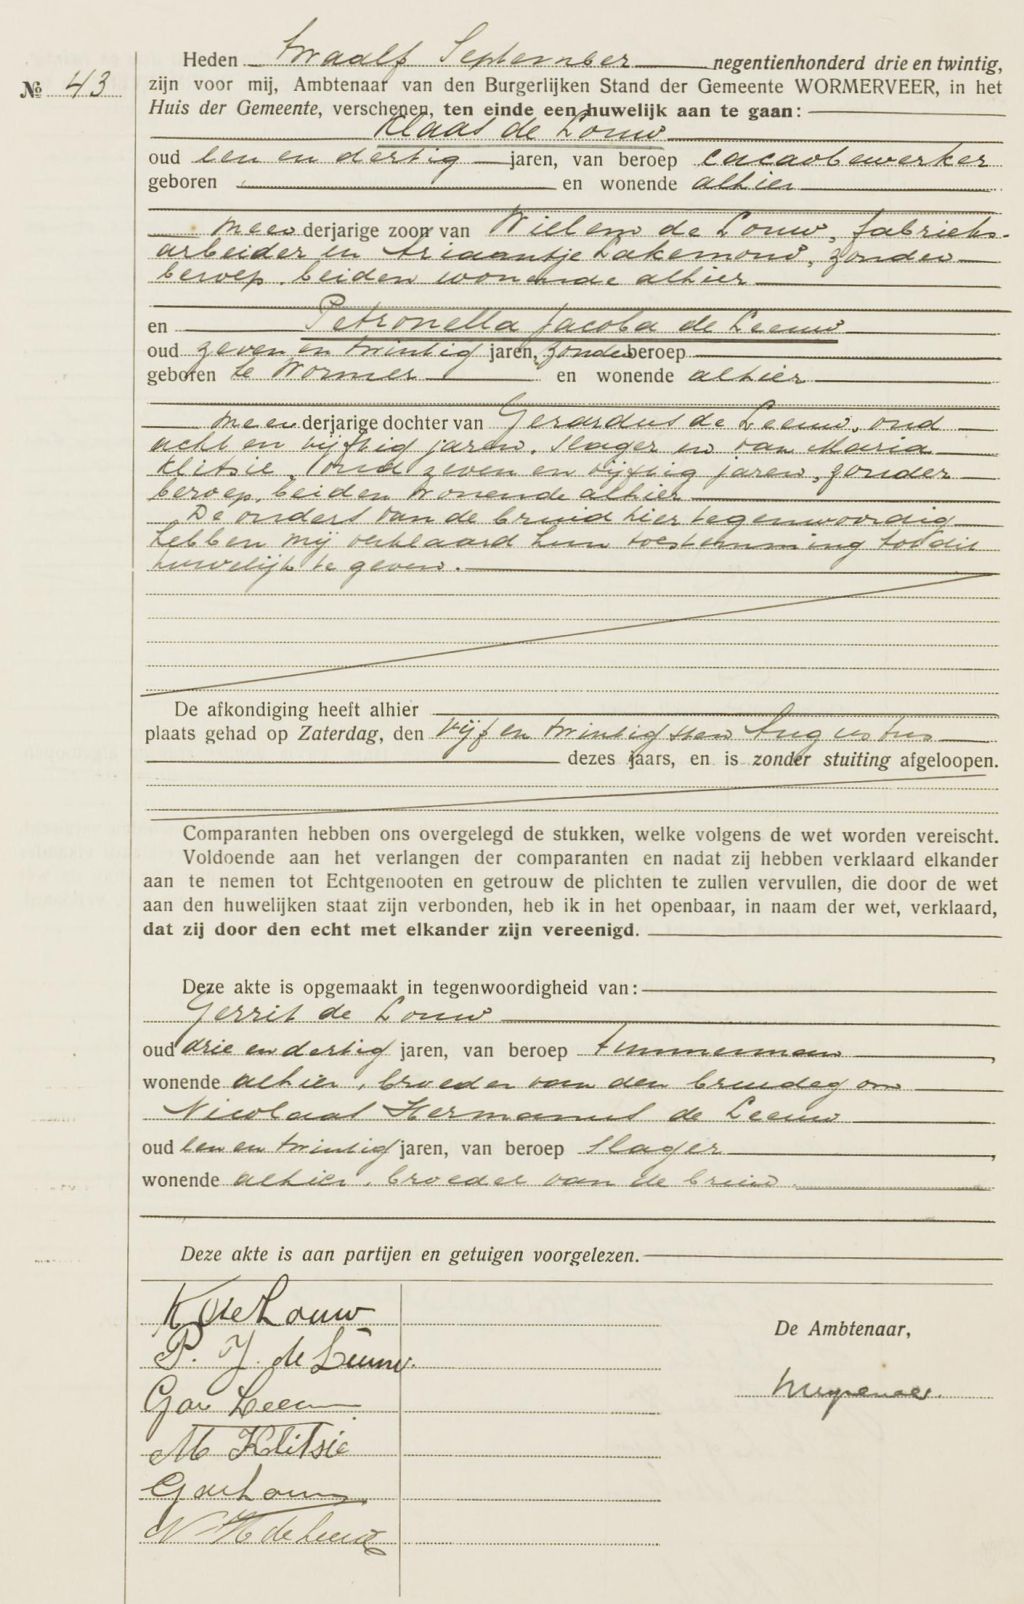 Heden twaalf September negentienhonderd drie en twintig,
№ 43
zijn voor mij, Ambtenaar van den Burgerlijken Stand der Gemeente WORMERVEER, in het
Huis der Gemeente, verschenen, ten einde een huwelijk aan te gaan:
Klaas de Louw
oud een en dertig jaren, van beroep cacaobewerker
geboren en wonende alhier
meerderjarige zoon van Willem de Louw, fabrieks-
arbeider en Ariaantje Lakemond, zonder
beroep, beiden wonende alhier
en Petronella Jacoba de Leeuw
oud zeven en twintig jaren, zonder beroep
geboren te Wormer en wonende alhier
meerderjarige dochter van Gerardus de Leeuw, oud
acht en vijftig jaren, slager en van Maria
Klitsie, oud zeven en vijftig jaren, zonder
beroep, beiden wonende alhier
De ouders van de bruid hier tegenwoordig
hebben mij verklaard hun toestemming tot dit
huwelijk te geven.
De afkondiging heeft alhier
plaats gehad op Zaterdag, den vijf en twintigsten Augustus
dezes jaars, en is zonder stuiting afgeloopen.
Comparanten hebben ons overgelegd de stukken, welke volgens de wet worden vereischt.
Voldoende aan het verlangen der comparanten en nadat zij hebben verklaard elkander
aan te nemen tot Echtgenooten en getrouw de plichten te zullen vervullen, die door de wet
aan den huwelijken staat zijn verbonden, heb ik in het openbaar, in naam der wet, verklaard,
dat zij door den echt met elkander zijn vereenigd.
Deze akte is opgemaakt in tegenwoordigheid van:
Gerrit de Louw
oud drie en dertig jaren, van beroep timmerman,
wonende alhier, broeder van den bruidegom
Nicolaas Hermanus de Leeuw
oud een en twintig jaren, van beroep slager,
wonende alhier, broeder van de bruid.
Deze akte is aan partijen en getuigen voorgelezen.
K de Louw
P. J. de Leeuw.
De Ambtenaar,
G de Leeuw
M Klitsie
G de Louw
N H de Leeuw